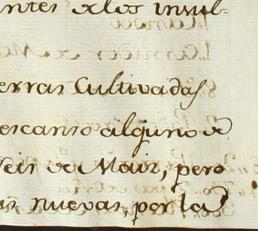 ntes de los insul-
erras Cultivadas
escanso alguno de
seis de Maiz, pero
as nuevas, por la